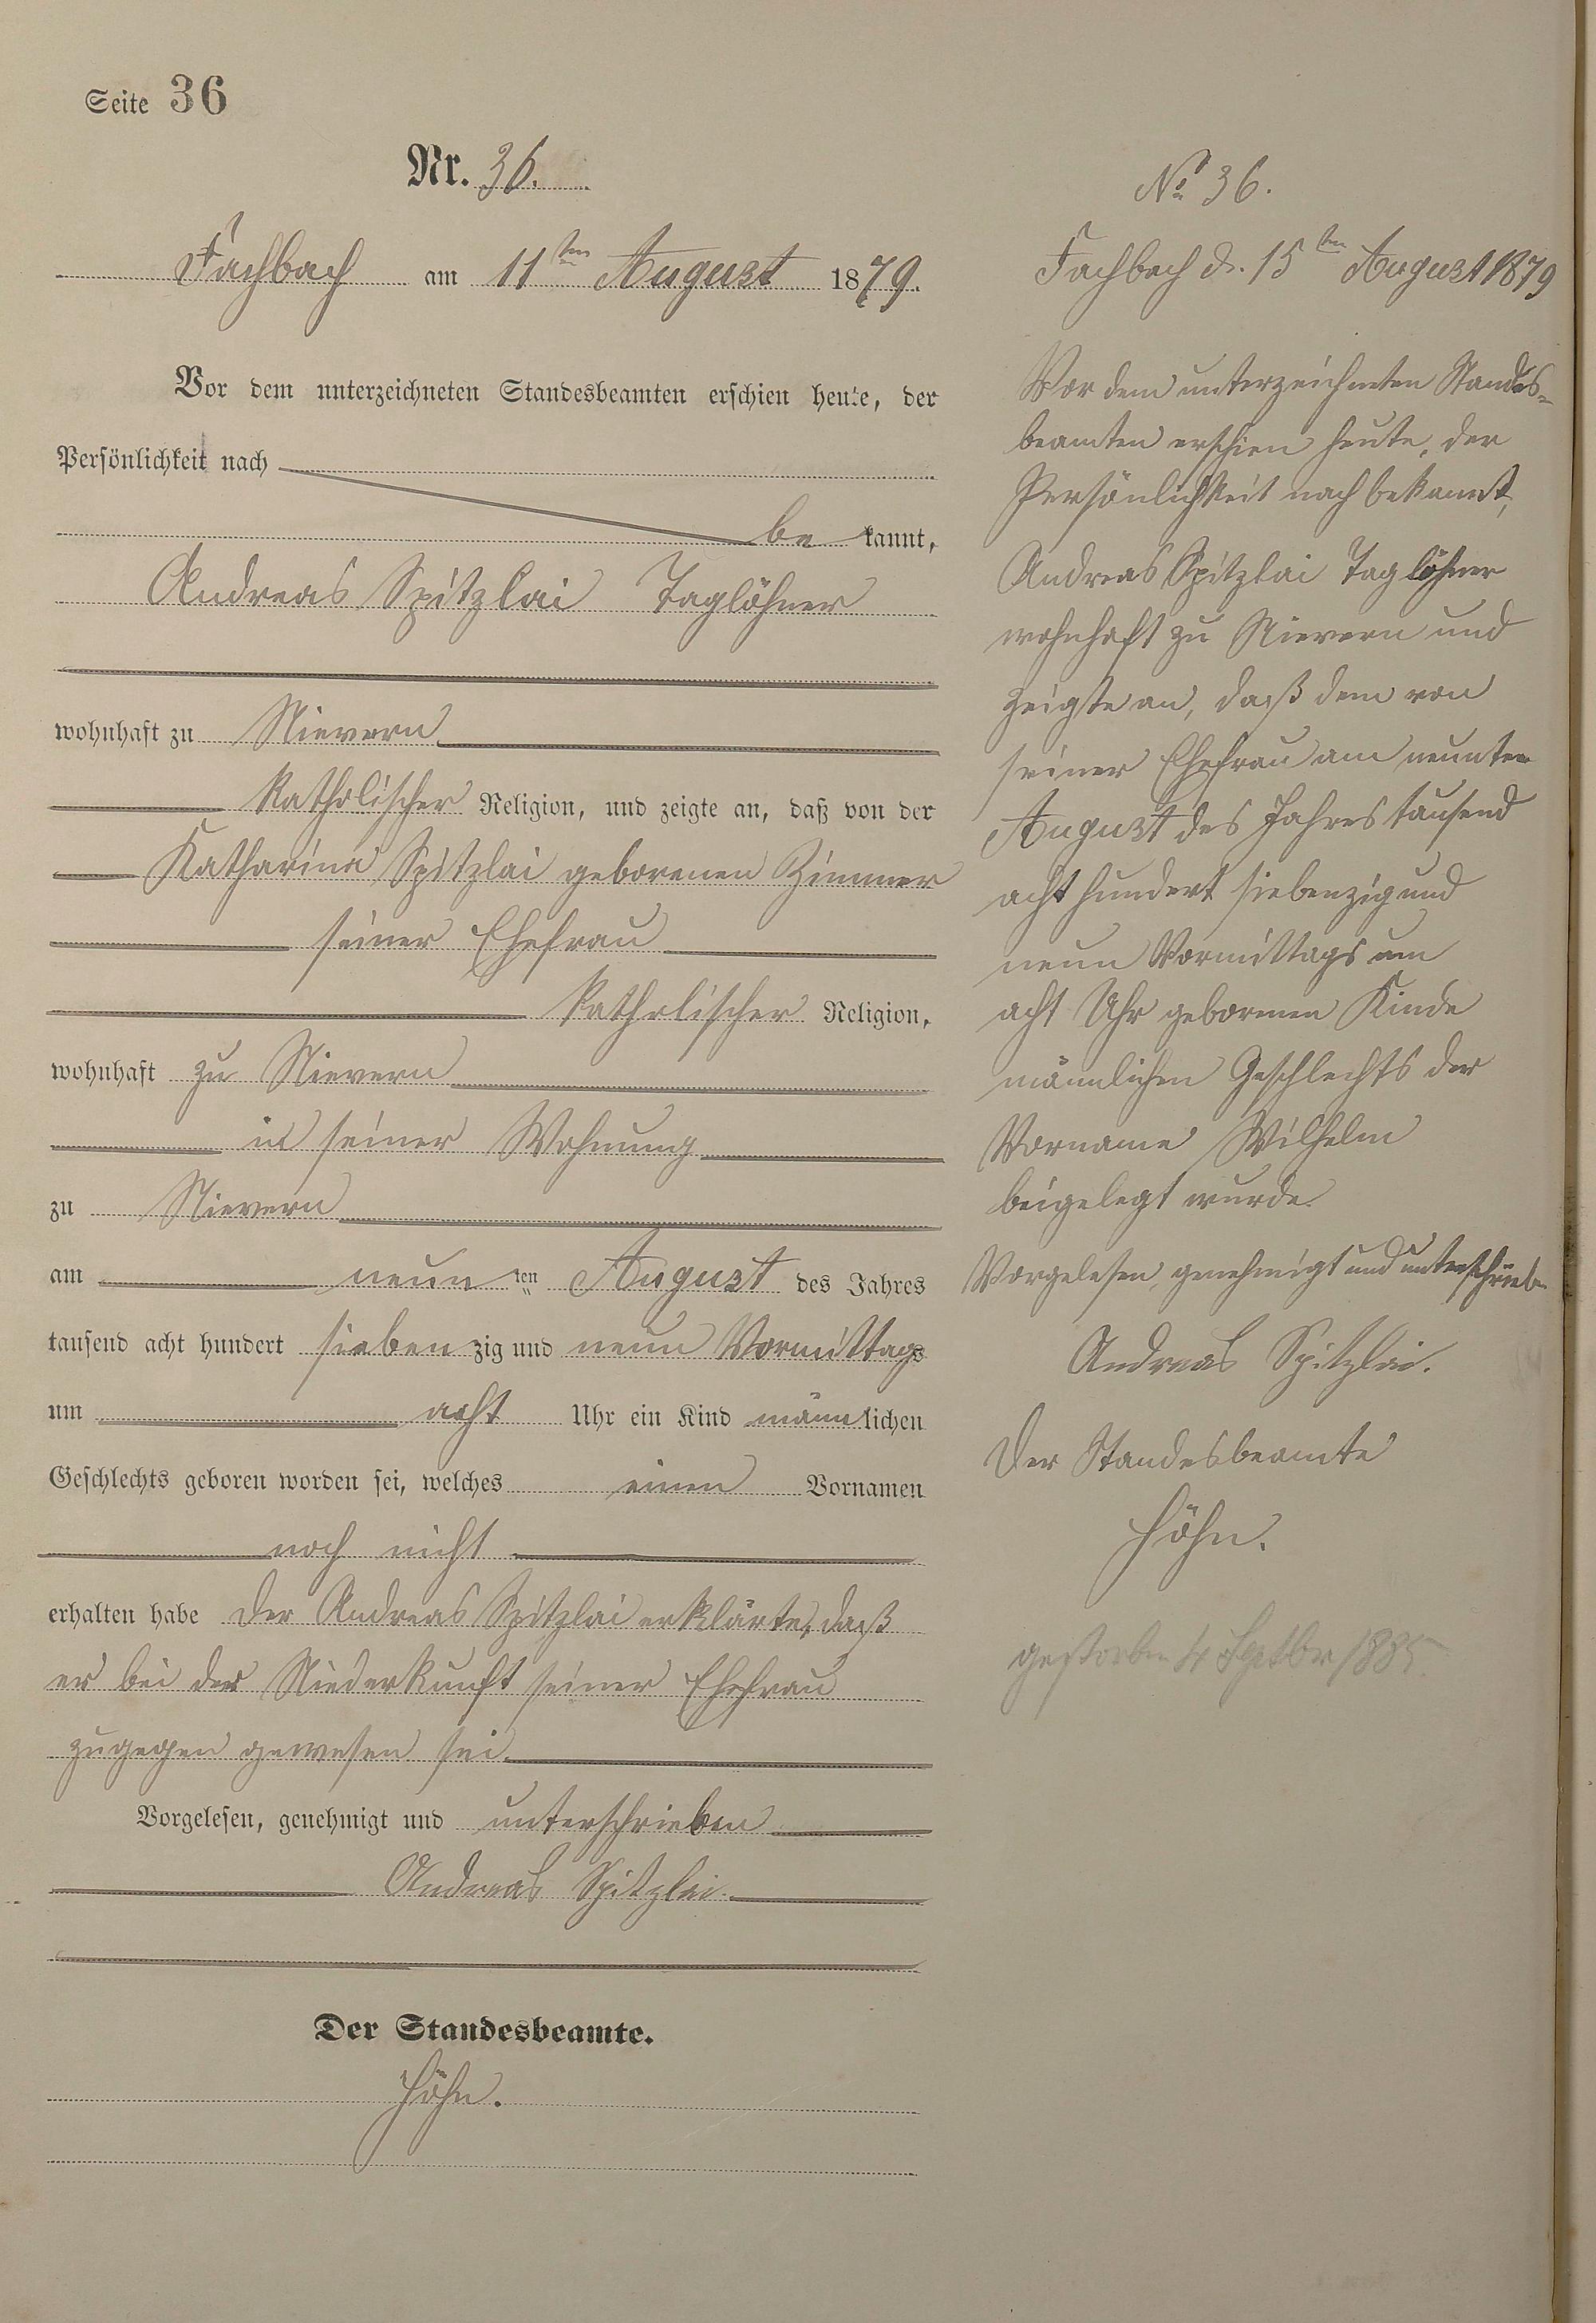 Seite 36
Nr. 36.
Fachbach am 11ten August 1879.
Vor dem unterzeichneten Standesbeamten erschien heute, der
Persönlichkeit nach
be kannt,
Andreas Spitzlai Taglöhner
wohnhaft zu Nievern
Katholischer Religion, und zeigte an, daß von der
Katharina Spitzlai geborenen Zimmer
seiner Ehefrau
katholischer Religion,
wohnhaft zu Nievern
in seiner Wohnung
zu Nievern
am neun ten August des Jahres
tausend acht hundert sieben zig und neun Vormittags
um acht Uhr ein Kind männlichen
Geschlechts geboren worden sei, welches einen Vornamen
noch nicht
erhalten habe der Andreas Spitzlai erklärte, daß
er bei der Niederkunft seiner Ehefrau
zugegen gewesen sei.
Vorgelesen, genehmigt und unterschrieben
Andreas Spitzlai.
Der Standesbeamte.
Höhn.
No. 36.
Fachbach d. 15ten August 1879
Vor dem unterzeichneten Standes-
beamten erschien heute, der
Persönlichkeit nach bekannt,
Andreas Spitzlai Taglöhner
wohnhaft zu Nievern und
zeigte an, daß dem von
seiner Ehefrau am neunten
August des Jahres tausend
acht hundert siebenzig und
neun Vormittags um
acht Uhr geborenen Kinde
männlichen Geschlechts der
Vorname Wilhelm
beigelegt wurde.
Vorgelesen, genehmigt und unterschrieben
Andreas Spitzlai.
Der Standesbeamte
Höhn.
gestorben 4 Septbr 1885.